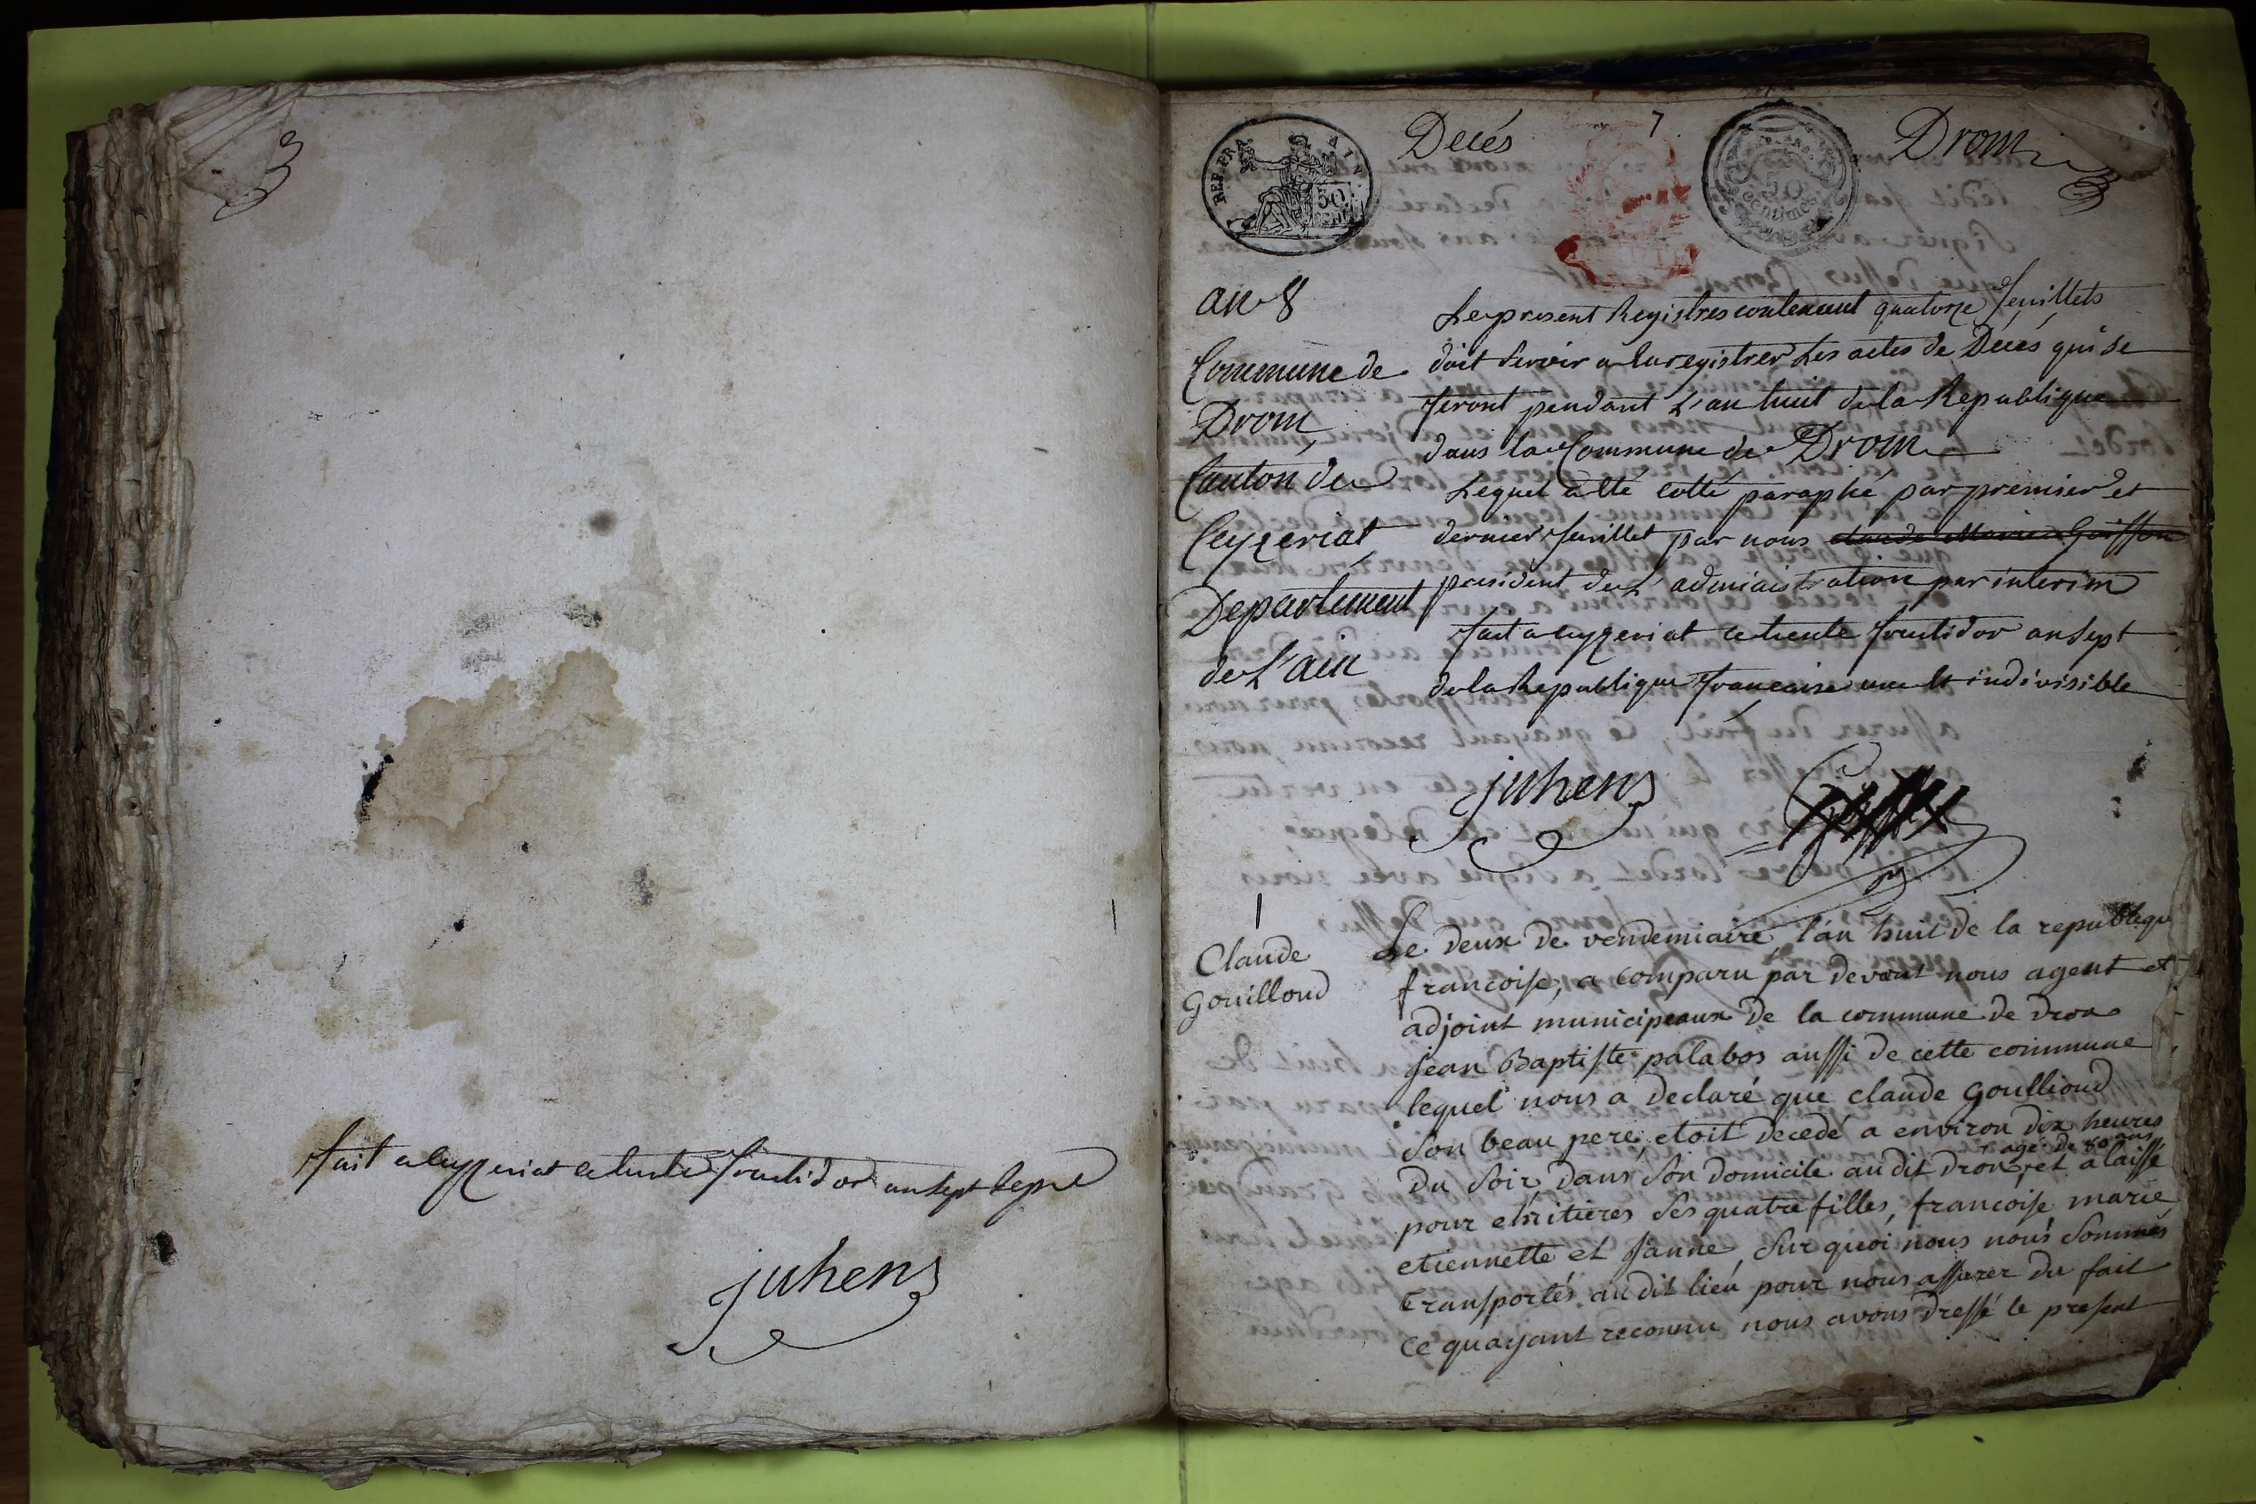 fait a ceyzeriat ce trente fructidor an sept
juhens
Decés
7
Drom
REP. FRA
AIN
50
CENT
50
Centimes
an 8
Commune de
Drom
Canton de
Ceyzeriat
Departement
de L'ain
Le present Registres contenant quatorze feuillets
doit servir a Enregistrer Les actes de Décés qui se
feront pendant L'an huit de la Republique
dans la Commune de Drom
Lequel a été cotté paraphé par premier et
dernier feuillet par nous claude Marie Goiffon
president de L'administration par interim
fait a ceyzeriat ce trente fructidor an sept
de la Republique francaise une et indivisible
juhens
1
Claude
Gouilloud
Le deux de vendemiaire l'an huit de la republique
francoise, a comparu par devant nous agent et
adjoint municipeaux de la commune de drom
jean Baptiste palabos aussi de cette commune
lequel nous a declaré que claude Goullioud
son beau pere, etoit decedé a environ dix heures
agé de 80 ans
du soir dans son domicile au dit drom, et a laissé
pour eritieres ses quatre filles, francoise marie
etiennette et janne, sur quoi nous nous sommes
transportés au dit lieu pour nous assurer du fait
ce quayant reconnu nous avons dressé le present